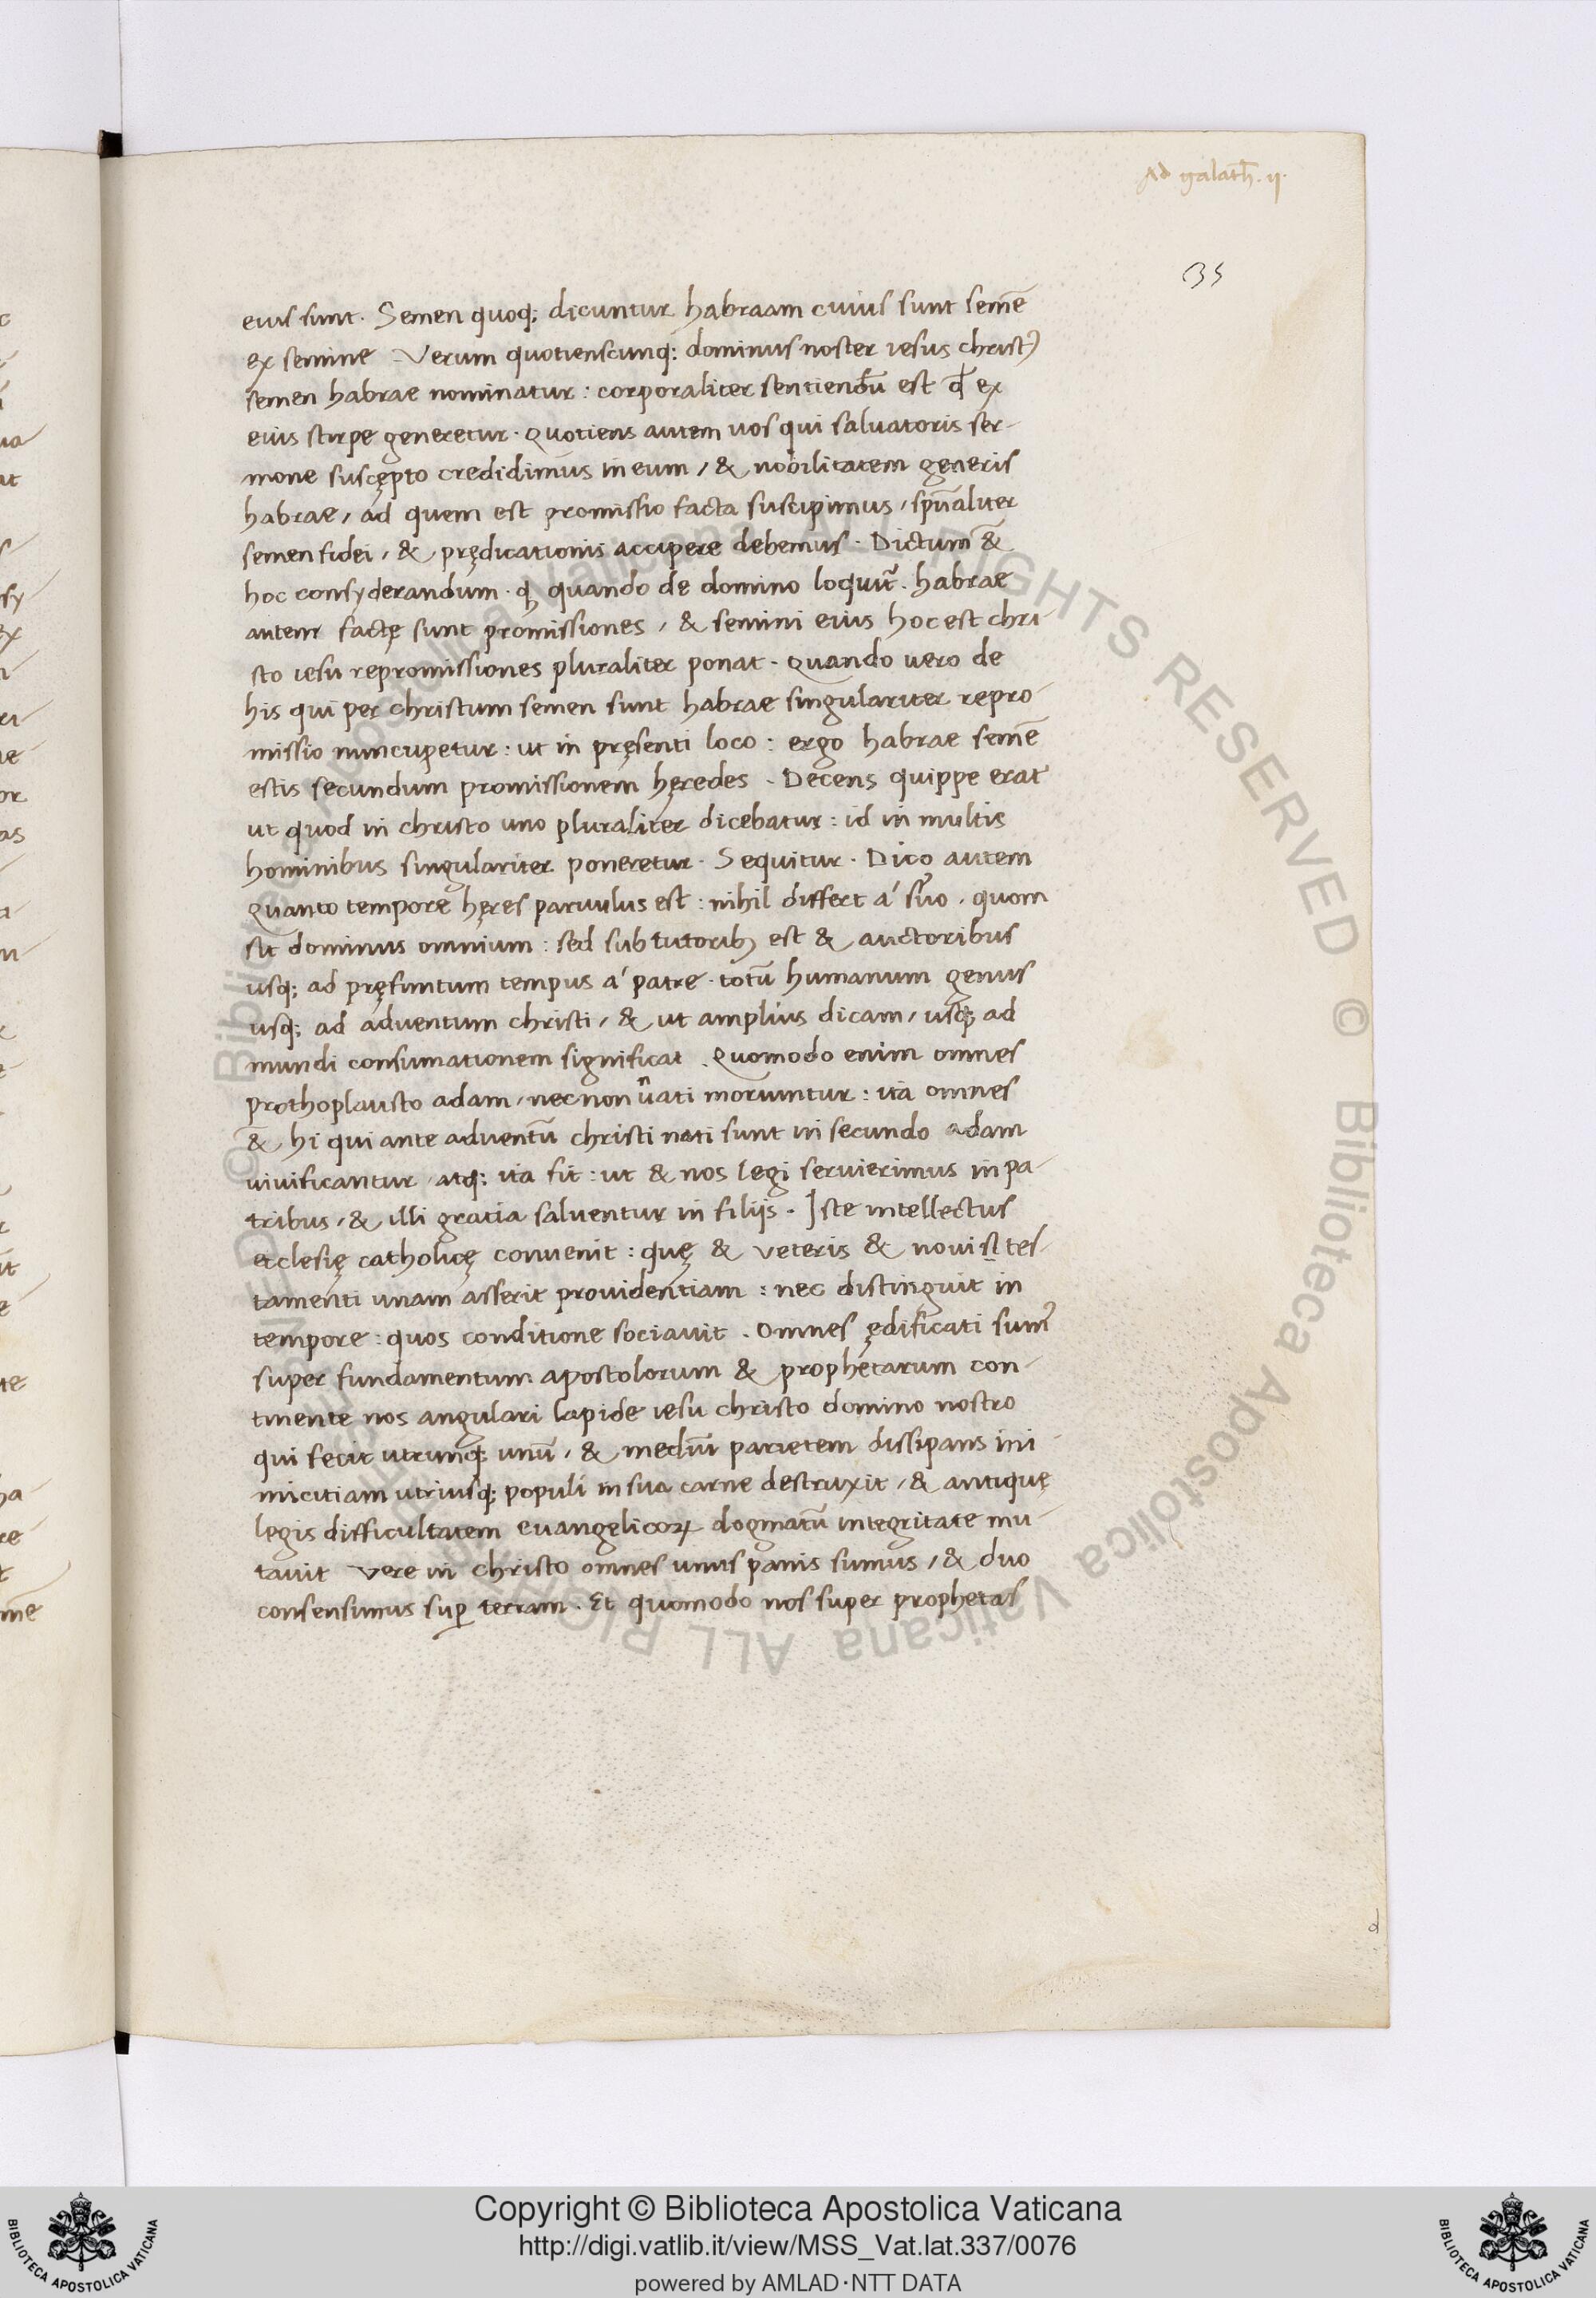 Ad galath̅. ij.
35
eius sunt. Semen quoq; dicuntur habraam cuius sunt semē
ex semine Verum quotienscunq; dominus noster iesus christꝰ
semen habrae nominatur: corporaliter sentiendū est ꝙ ex
eius stirpe generetur. Quotiens autem nos qui saluatoris ser-
mone suscępto credidimus in eum, & nobilitatem generis
habrae, ad quem est promissio facta suscipimus, spūaliter
semen fidei, & prędicationis accipere debemus. Dictum &̄
hoc consyderandum. ꝙ quando de domino loquit̃. habrae
autem factę sunt promissiones, & semini eius hoc est chri-
sto iesu repromissiones pluraliter ponat. Quando uero de
his qui per christum semen sunt habrae singulariter repro-
missio nuncupetur: ut in pręsenti loco: ergo habrae semē
estis secundum promissionem hęredes. Decens quippe erat
ut quod in christo uno pluraliter dicebatur: id in multis
hominibus singulariter poneretur. Sequitur. Dico autem
Quanto tempore hęres paruulus est: nihil differt á s̃uo. quom
sit dominus omnium: sed sub tutoribꝫ est & auctoribus
usq; ad pręfinitum tempus á patre. totū humanum genus
usq; ad aduentum christi, & ut amplius dicam, usq; ad
mundi consumationem significat. Quomodo enim omnes
prothoplausto adam, necnon nati moriuntur: ita omnes
&̄ hi qui ante aduentū christi nati sunt in secundo adam
uiuificantur. atq; ita fit: ut & nos legi seruierimus in pa-
tribus, & illi gratia saluentur in filijs. Iste intellectus
ecclesię catholicę conuenit: quę & veteris & noui tes-
tamenti unam asserit prouidentiam: nec distinguit in
tempore: quos conditione sociauit. Omnes ędificati sumꝰ
super fundamentum apostolorum & prophetarum con-
tinente nos angulari lapide iesu christo domino nostro
qui fecit utrunq; unū, & mediū parietem dissipans ini-
micitiam utriusq; populi in sua carne destruxit, & antiquę
legis difficultatem euangelicoꝝ dogmatū integritate mu-
tauit vere in christo omnes unus panis sumus, & duo
consensimus suꝑ terram. Et quomodo nos super prophetas
d
Copyright © Biblioteca Apostolica Vaticana
http://digi.vatlib.it/view/MSS_Vat.lat.337/0076
powered by AMLAD·NTT DATA
BIBLIOTECA APOSTOLICA VATICANA
BIBLIOTECA APOSTOLICA VATICANA
© Biblioteca Apostolica Vaticana ALL RIGHTS RESERVED © Biblioteca Apostolica Vaticana ALL RIGHTS RESERVED